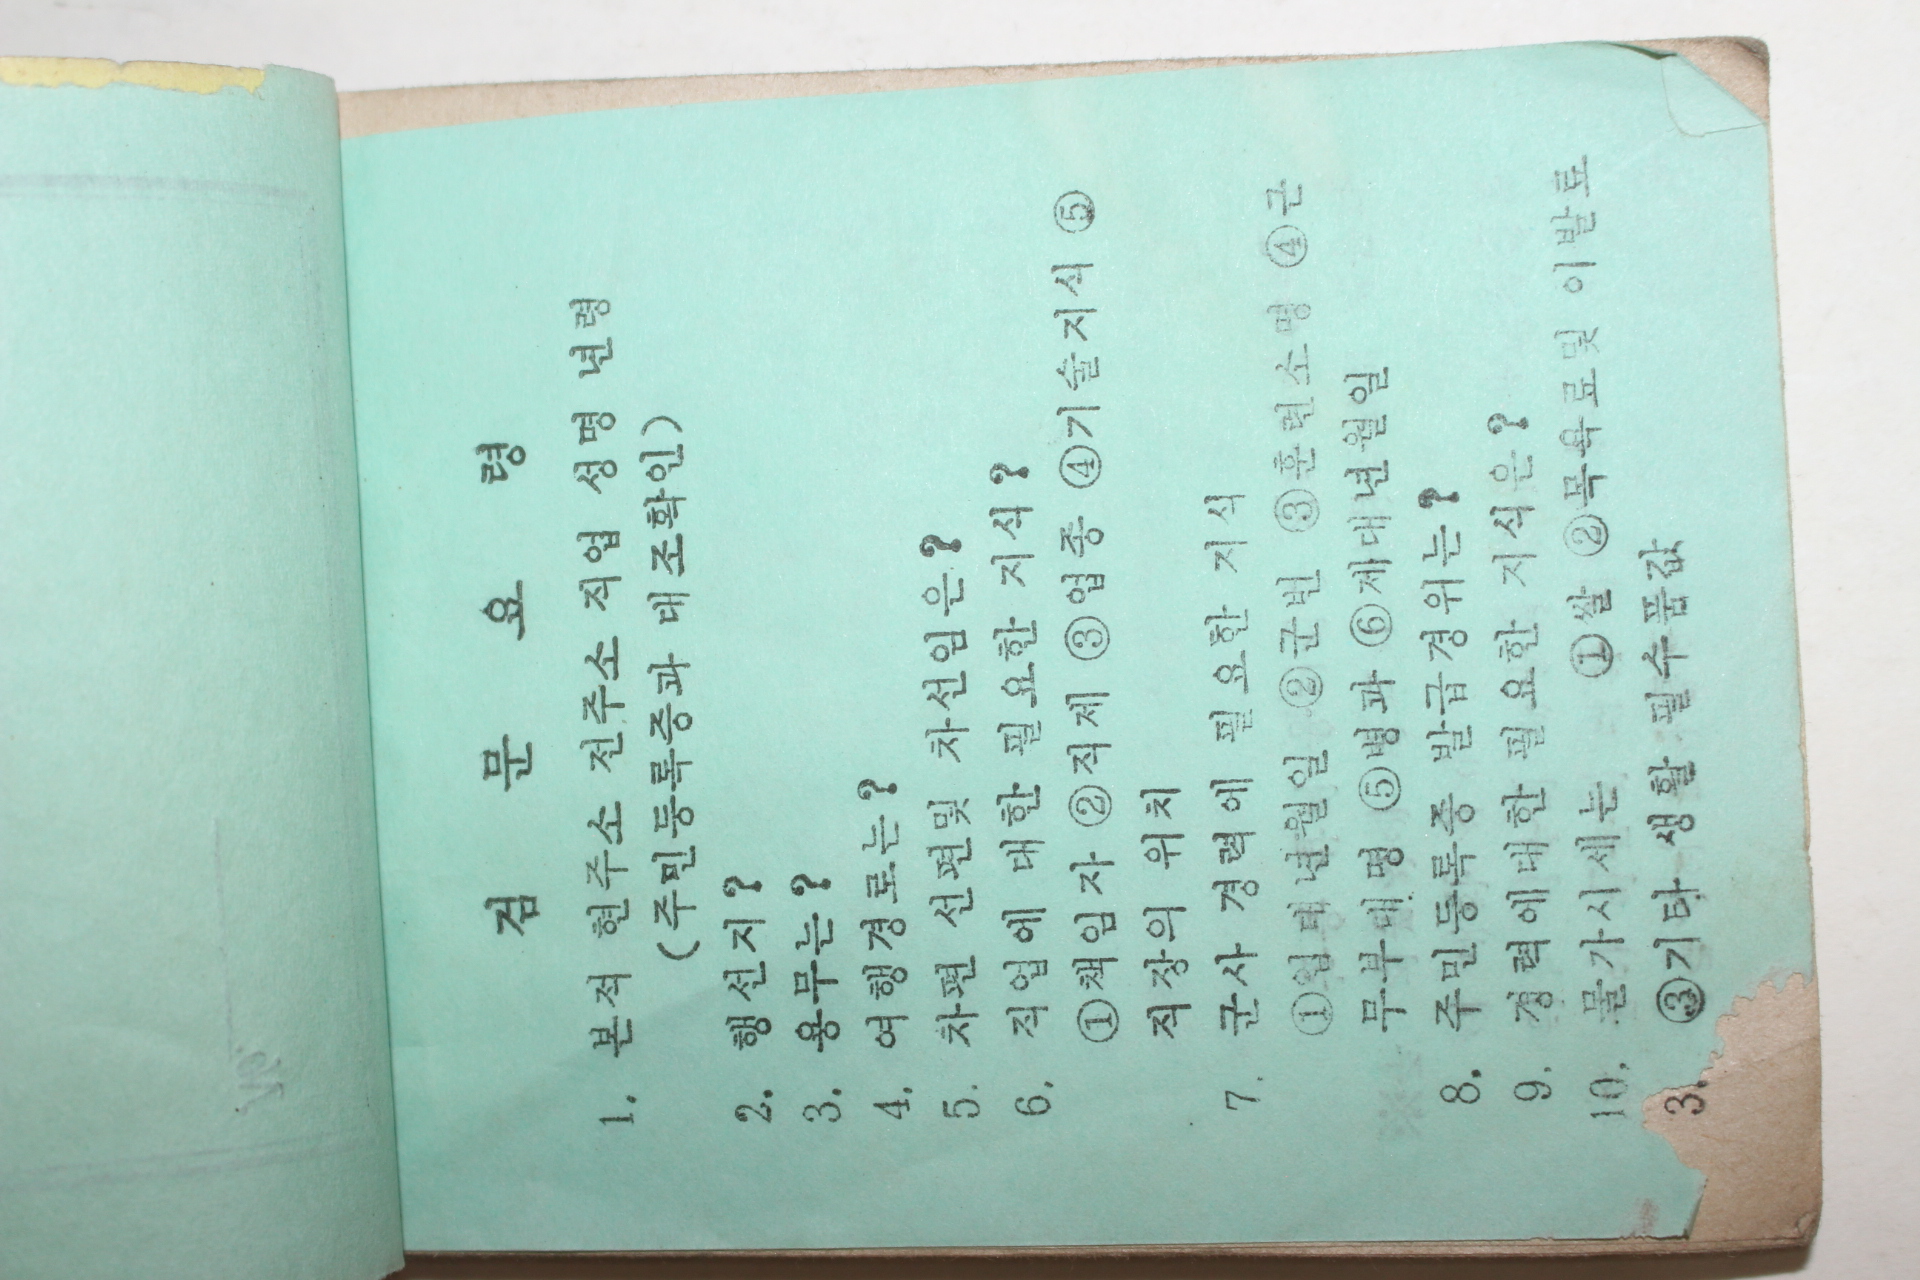 검 문 요 령
1. 본적 현주소 전주소 직업 성명 년령
(주민등록증과 대조확인)
2. 행선지?
3. 용무는?
4. 여행경로는?
5. 차편 선편및 차선임은?
6. 직업에 대한 필요한 지식?
①책임자 ②직제 ③업종 ④기술지식 ⑤
직장의 위치
7. 군사 경력에 필요한 지식
①입대년월일 ②군번 ③훈련소명 ④근
무부대명 ⑤병과 ⑥제대년월일
8. 주민등록증 발급경위는?
9. 경력에대한 필요한 지식은?
10. 물가시세는 ①쌀 ②목욕료및 이발료
③기타 생활 필수품값
3.